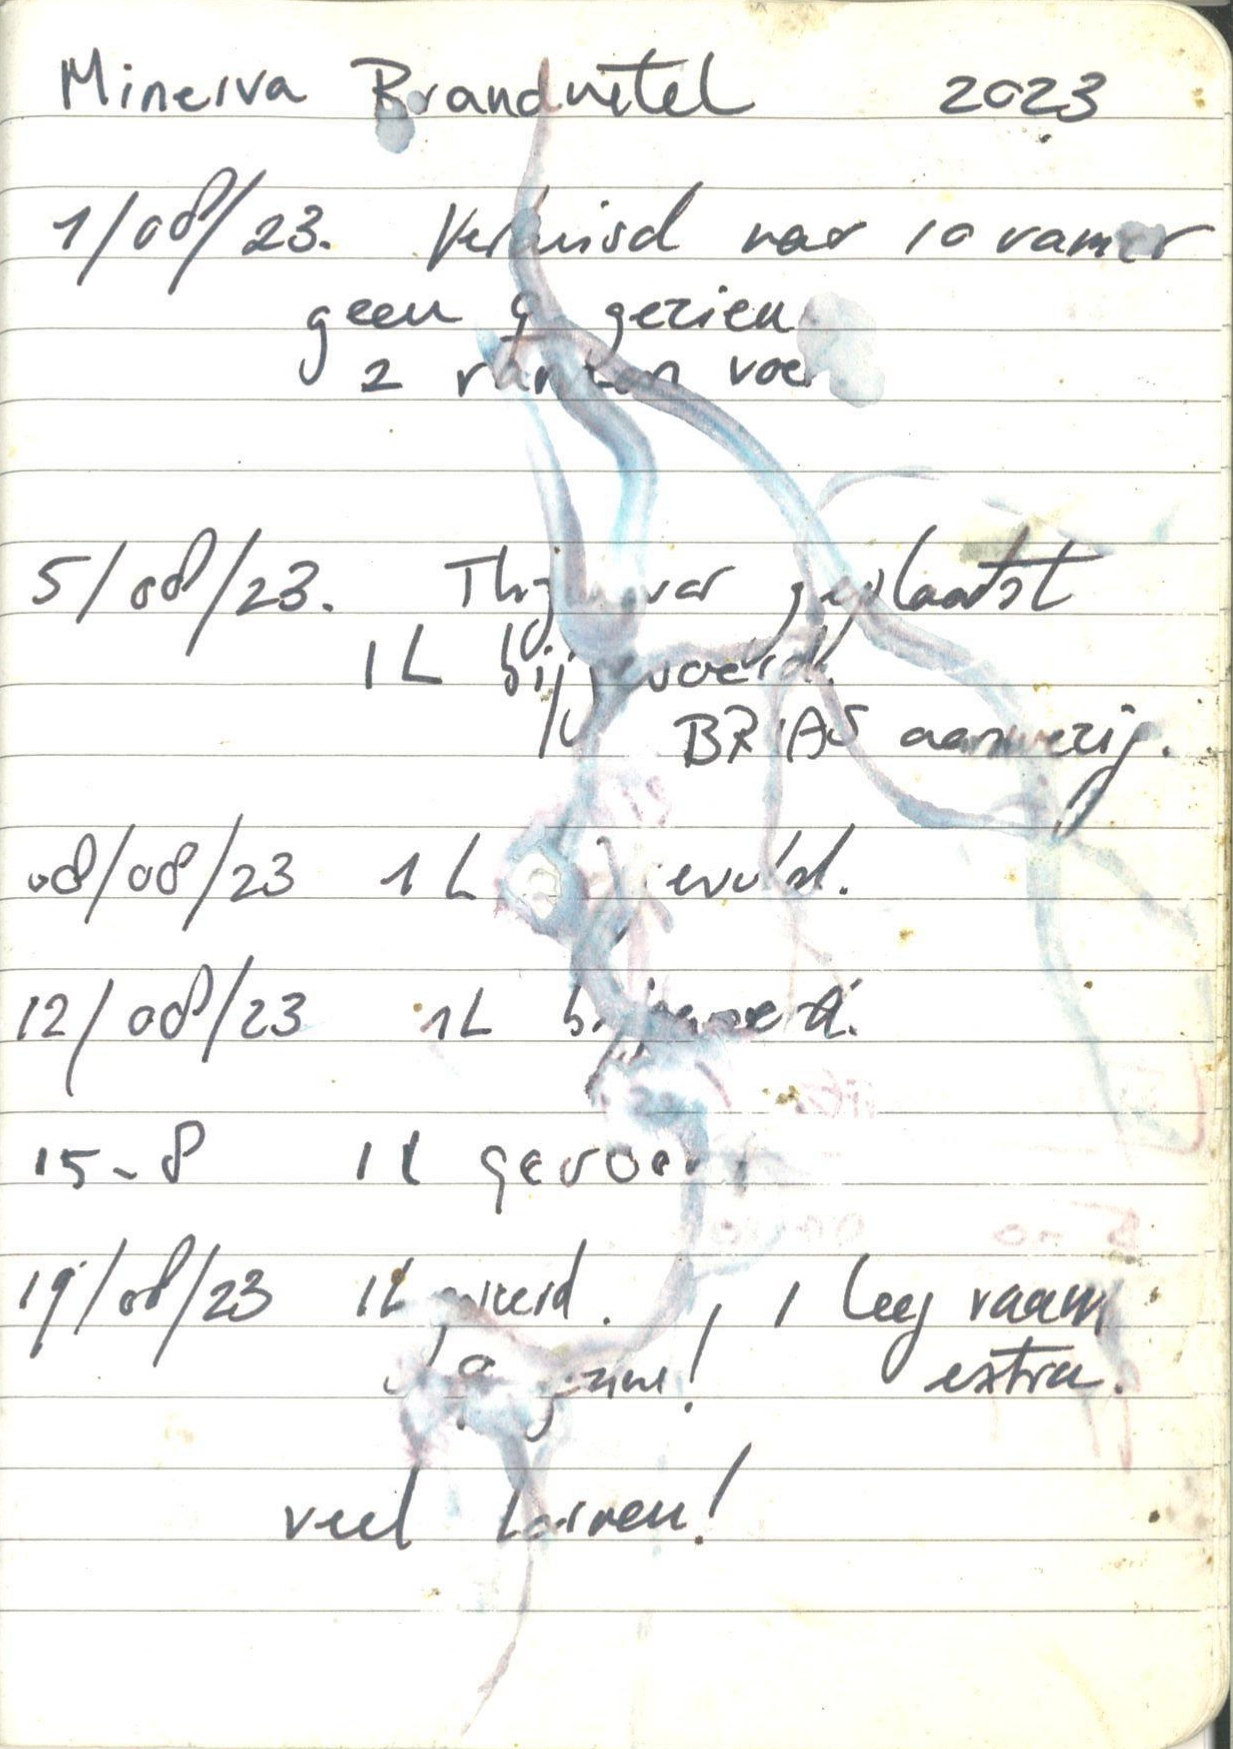 Minerva Brandnetel 2023
1/08/23. Verhuisd naar 10 ramer
geen ♀ gezien
2 ramen voer
5/08/23. geplaatst
1L bijgevoerd.
BR AS aanwezig.
08/08/23 1L
12/08/23 1L bijgevoerd.
15-8 1L gevoer
19/08/23 1L , 1 leeg raam
! extra.
veel larven!